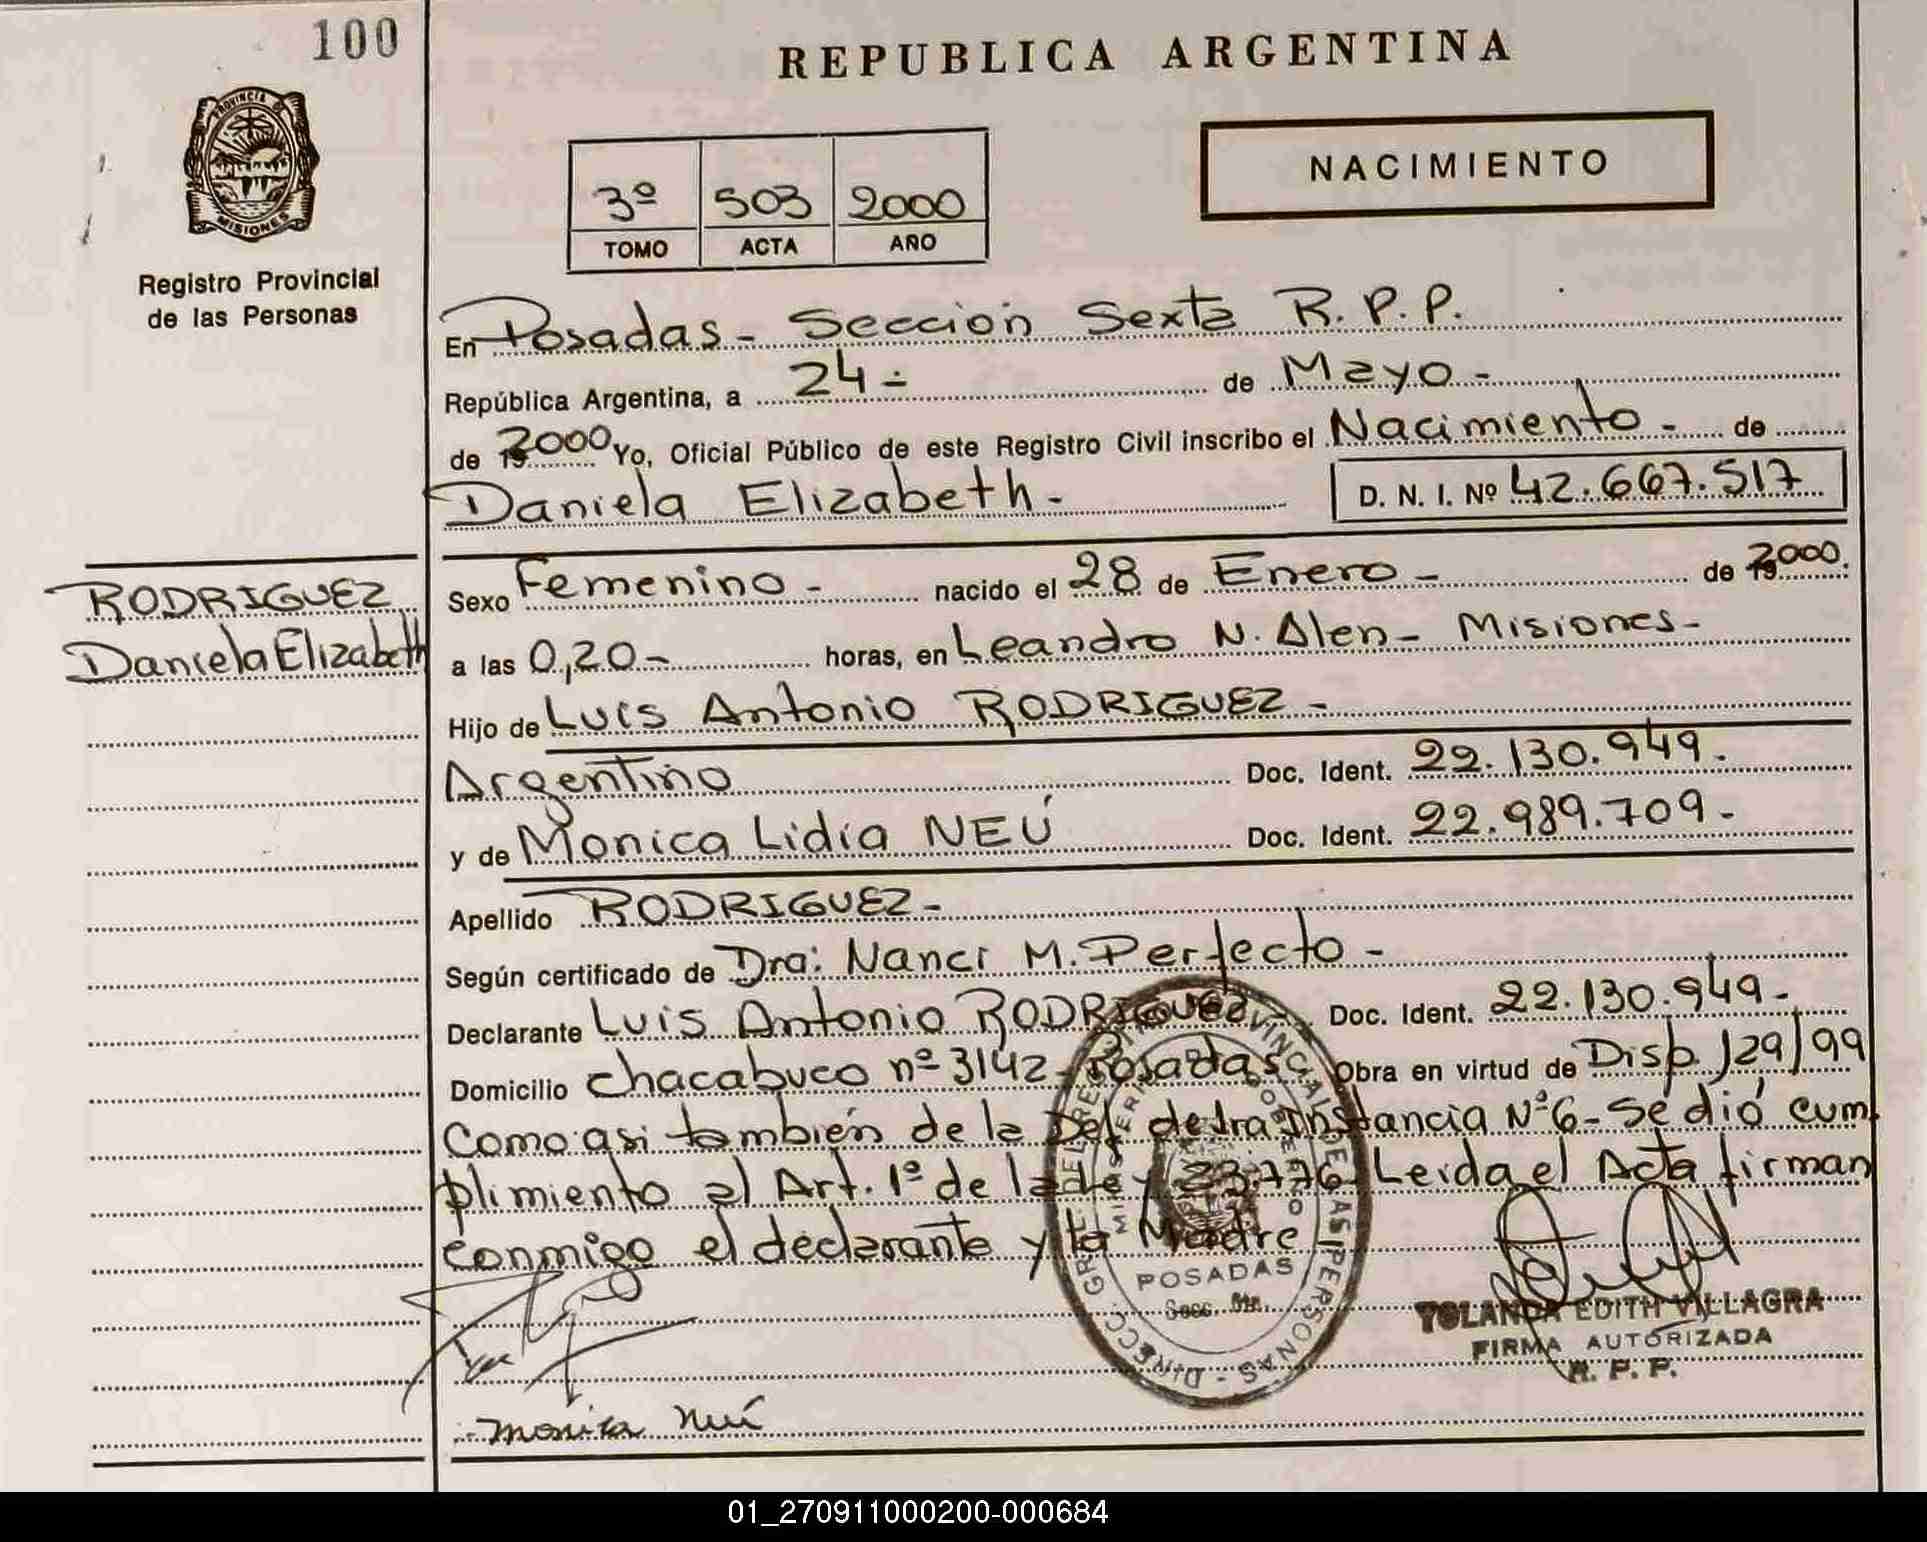 100
REPUBLICA ARGENTINA
PROVINCIA DE
MISIONES
NACIMIENTO
3º 503 2000
TOMO ACTA AÑO
Registro Provincial
de las Personas
En Posadas - Sección Sexta R.P.P.
República Argentina, a 24 - de Mayo -
de 2000 Yo, Oficial Público de este Registro Civil inscribo el Nacimiento - de
Daniela Elizabeth - D. N. I. Nº 42.667.517
RODRIGUEZ
Daniela Elizabeth
Sexo Femenino - nacido el 28 de Enero - de 2000.
a las 0,20 - horas, en Leandro N. Alen - Misiones -
Hijo de Luis Antonio RODRIGUEZ -
Argentino Doc. Ident. 22.130.949.-
y de Monica Lidia NEÚ Doc. Ident. 22.989.709.-
Apellido RODRIGUEZ -
Según certificado de Dra: Nanci M. Perfecto -
Declarante Luis Antonio RODRIGUEZ Doc. Ident. 22.130.949.-
Domicilio Chacabuco nº 3142 - Posadas Obra en virtud de Disp. 129/99
Como asi también de la Def. de 1ra Instancia Nº 6 - Se dió cum
plimiento al Art. 1º de la Ley 23.776 Leida el Acta firman
conmigo el declarante y la Madre
POSADAS
Secc. 6ta.
YOLANDA EDITH VILLAGRA
FIRMA AUTORIZADA
R. P. P.
Monica Neú
01_270911000200-000684